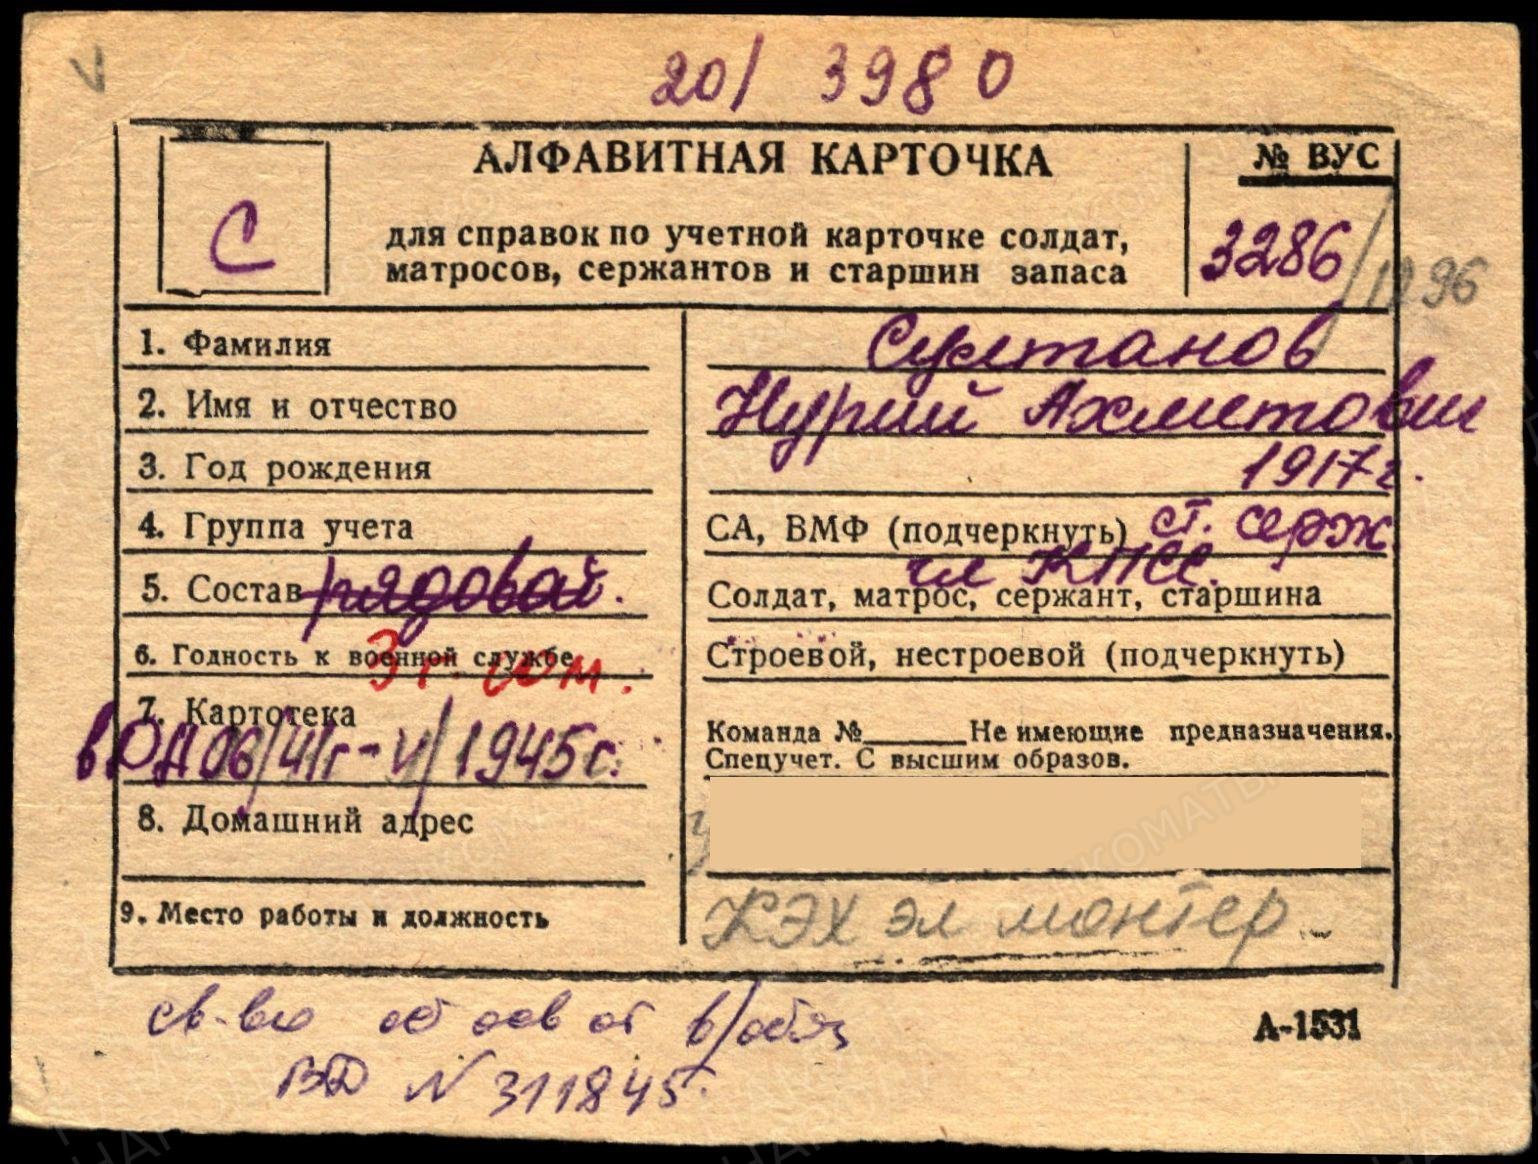 20/ 3980
АЛФАВИТНАЯ КАРТОЧКА
№ ВУС
С
для справок по учетной карточке солдат,
матросов, сержантов и старшин запаса
3286/
1. Фамилия
Султанов
2. Имя и отчество
Нурий Ахметович
3. Год рождения
1917г.
4. Группа учета
СА, ВМФ (подчеркнуть) ст. серж
чл КПСС.
5. Состав рядовой.
Солдат, матрос, сержант, старшина
6. Годность к военной службе
3 г. сом.
Строевой, нестроевой (подчеркнуть)
7. Картотека
вОА 06/41г - V/1945г.
Команда №______Не имеющие предназначения.
Спецучет. С высшим образов.
8. Домашний адрес
9. Место работы и должность
КЭХ эл монтер
св-во об осв от в/обяз
А-1531
ВД N 311845.